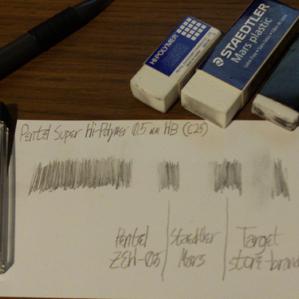 HI-POLYMER
STAEDTLER
Mars plastic
Pentel Super Hi-Polymer 0.5 mm HB (C25)
Pentel
ZEH-05
Staedtler
Mars
Target
store-brand